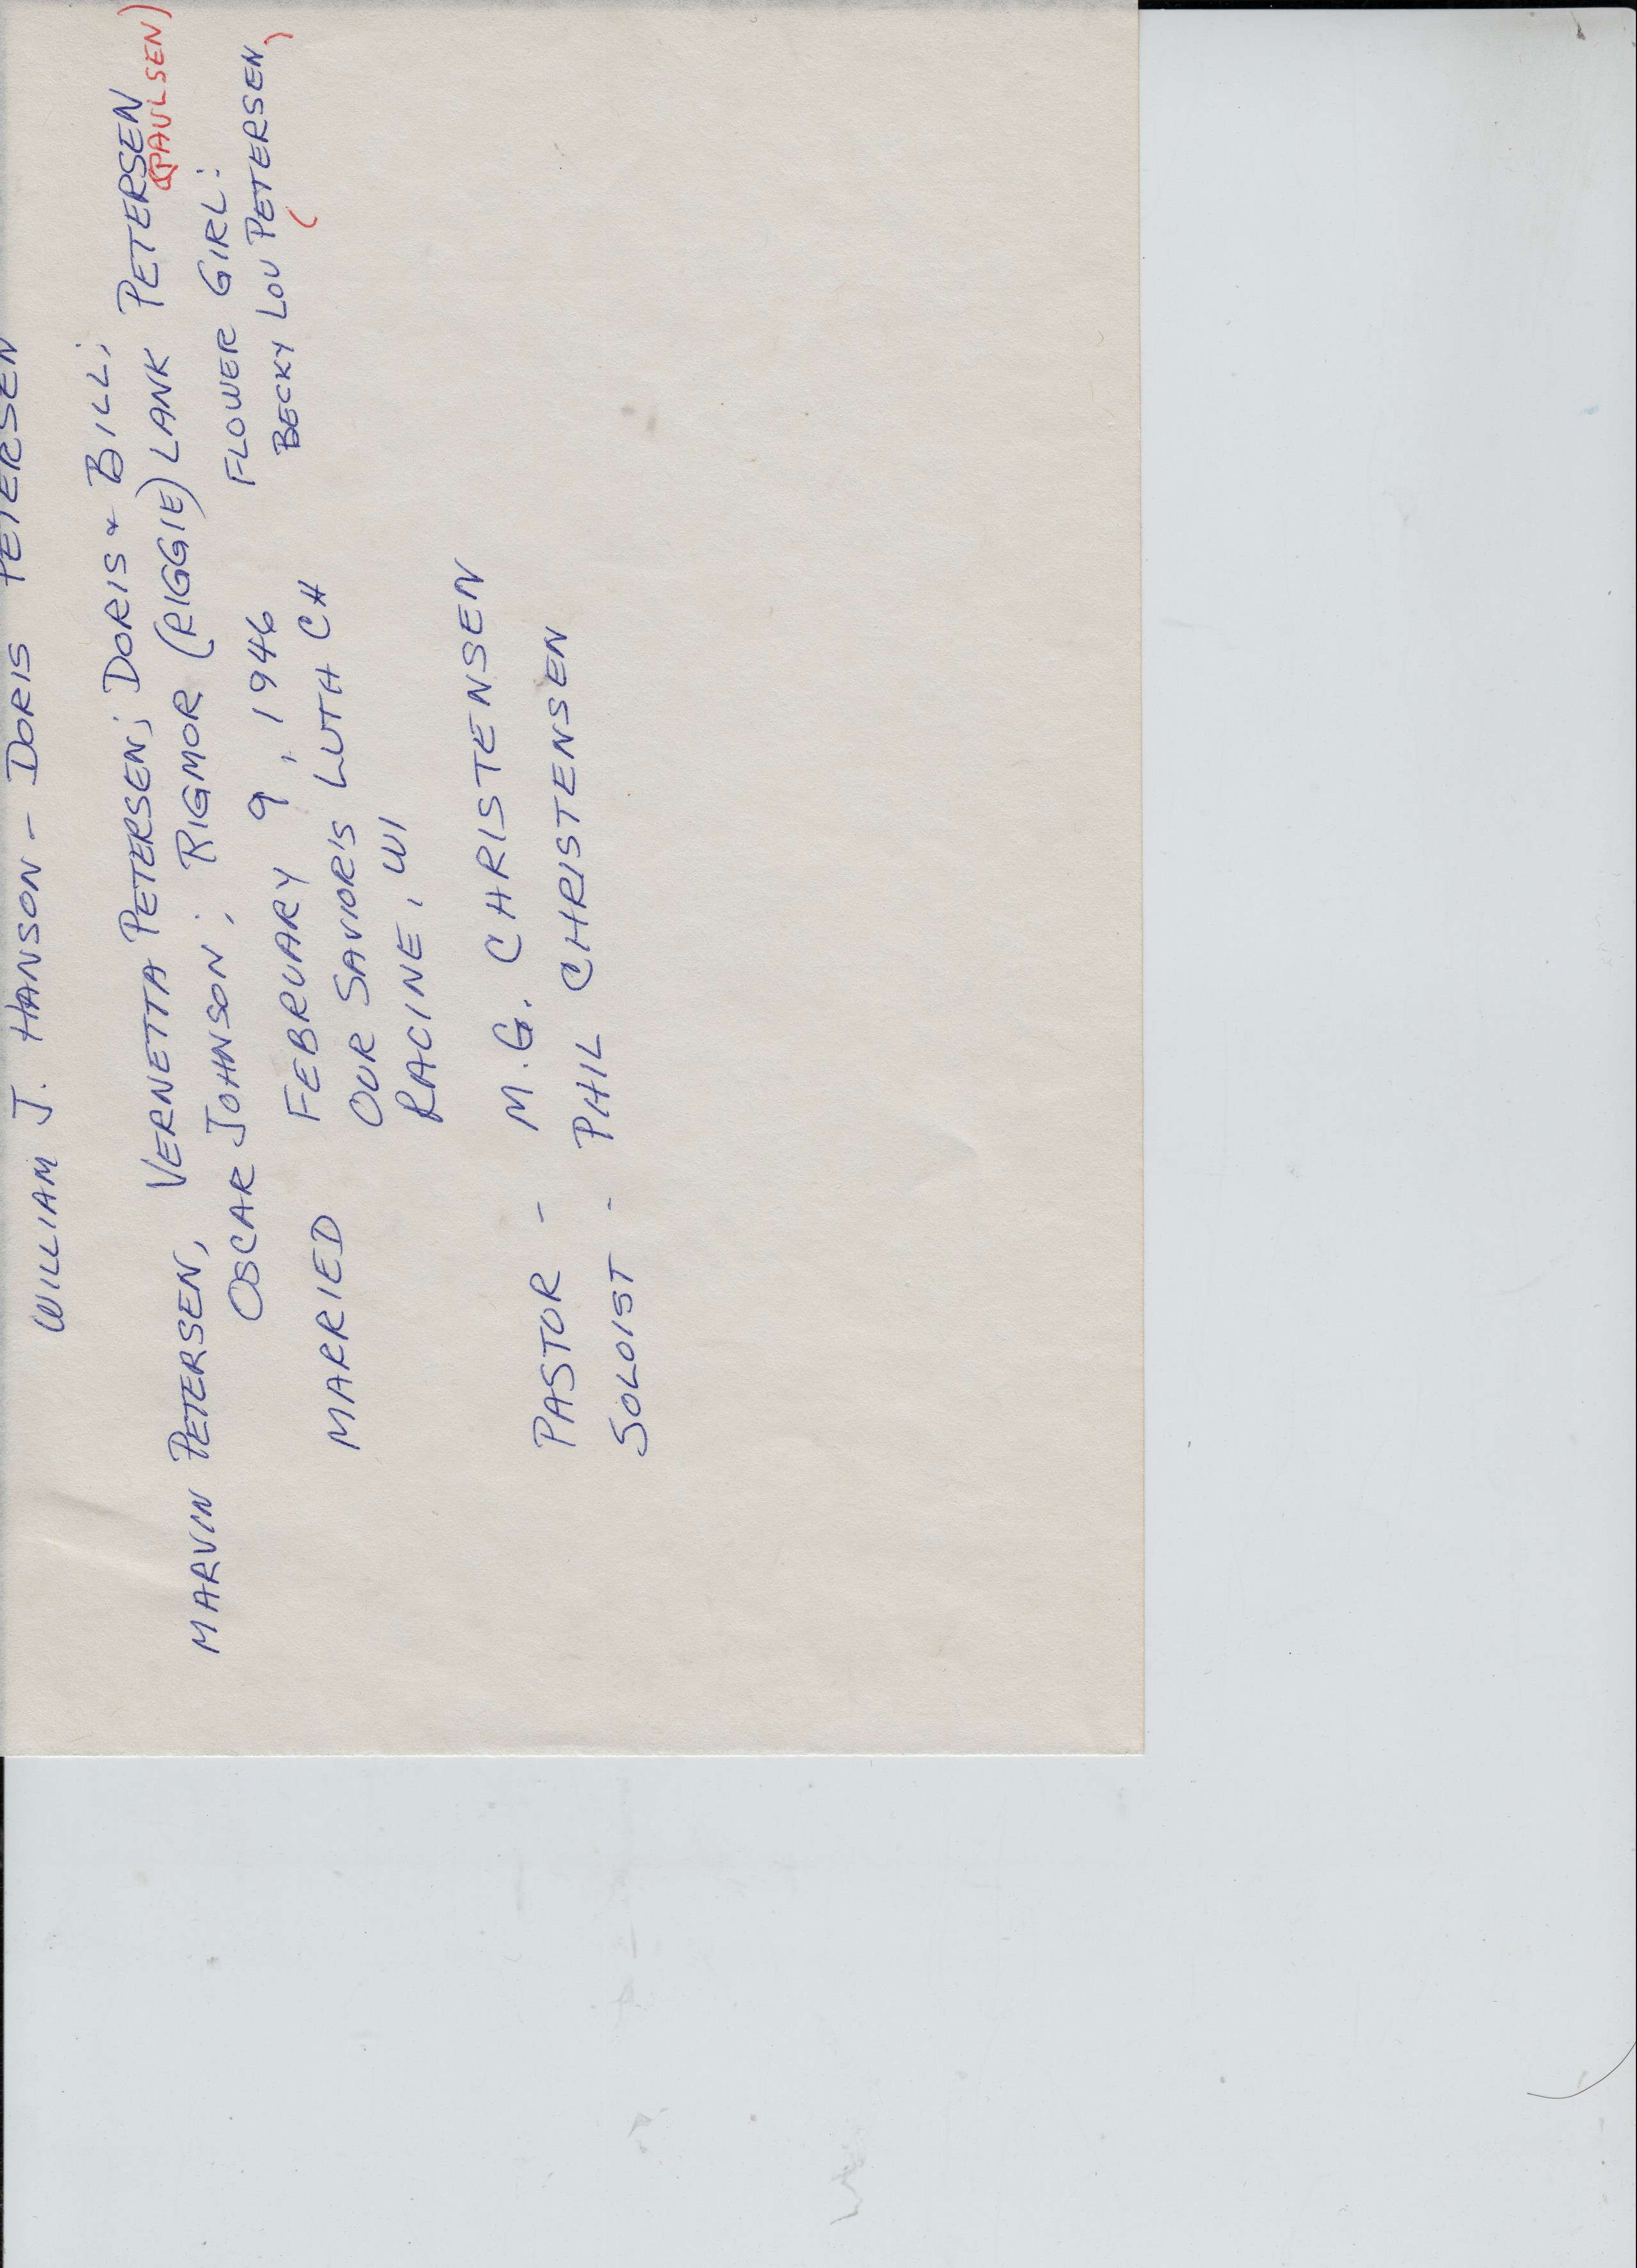 WILLIAM J. HANSON - DORIS PETERSEN
MARVIN PETERSEN, VERNETTA PETERSEN; DORIS & BILL;
OSCAR JOHNSON; RIGMOR (RIGGIE) LANK PETERSEN
(PAULSEN)
FLOWER GIRL:
BECKY LOU (PETERSEN)
MARRIED FEBRUARY 9, 1946
OUR SAVIORS LUTH CH
RACINE, WI
PASTOR - M.G. CHRISTENSEN
SOLOIST - PHIL CHRISTENSEN